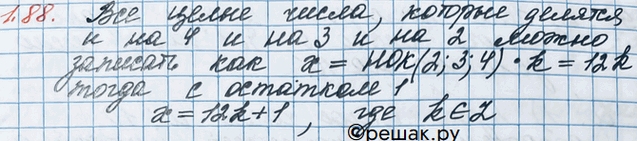 1.88. Все целые числа, которые делятся
и на 4 и на 3 и на 2 можно
записать как x = НОК(2; 3; 4) · k = 12k
тогда с остатком 1
x = 12k + 1, где k ∈ Z
©решак.ру